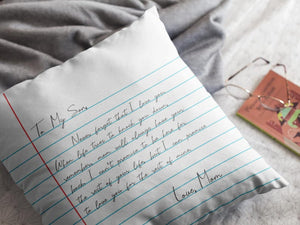 To My Son,
Never forget that I love you
When life tries to knock you down
remember mom will always love you
back. I can't promise to be here for
the rest of your life but I can promise
to love you for the rest of mine.
Love, Mom